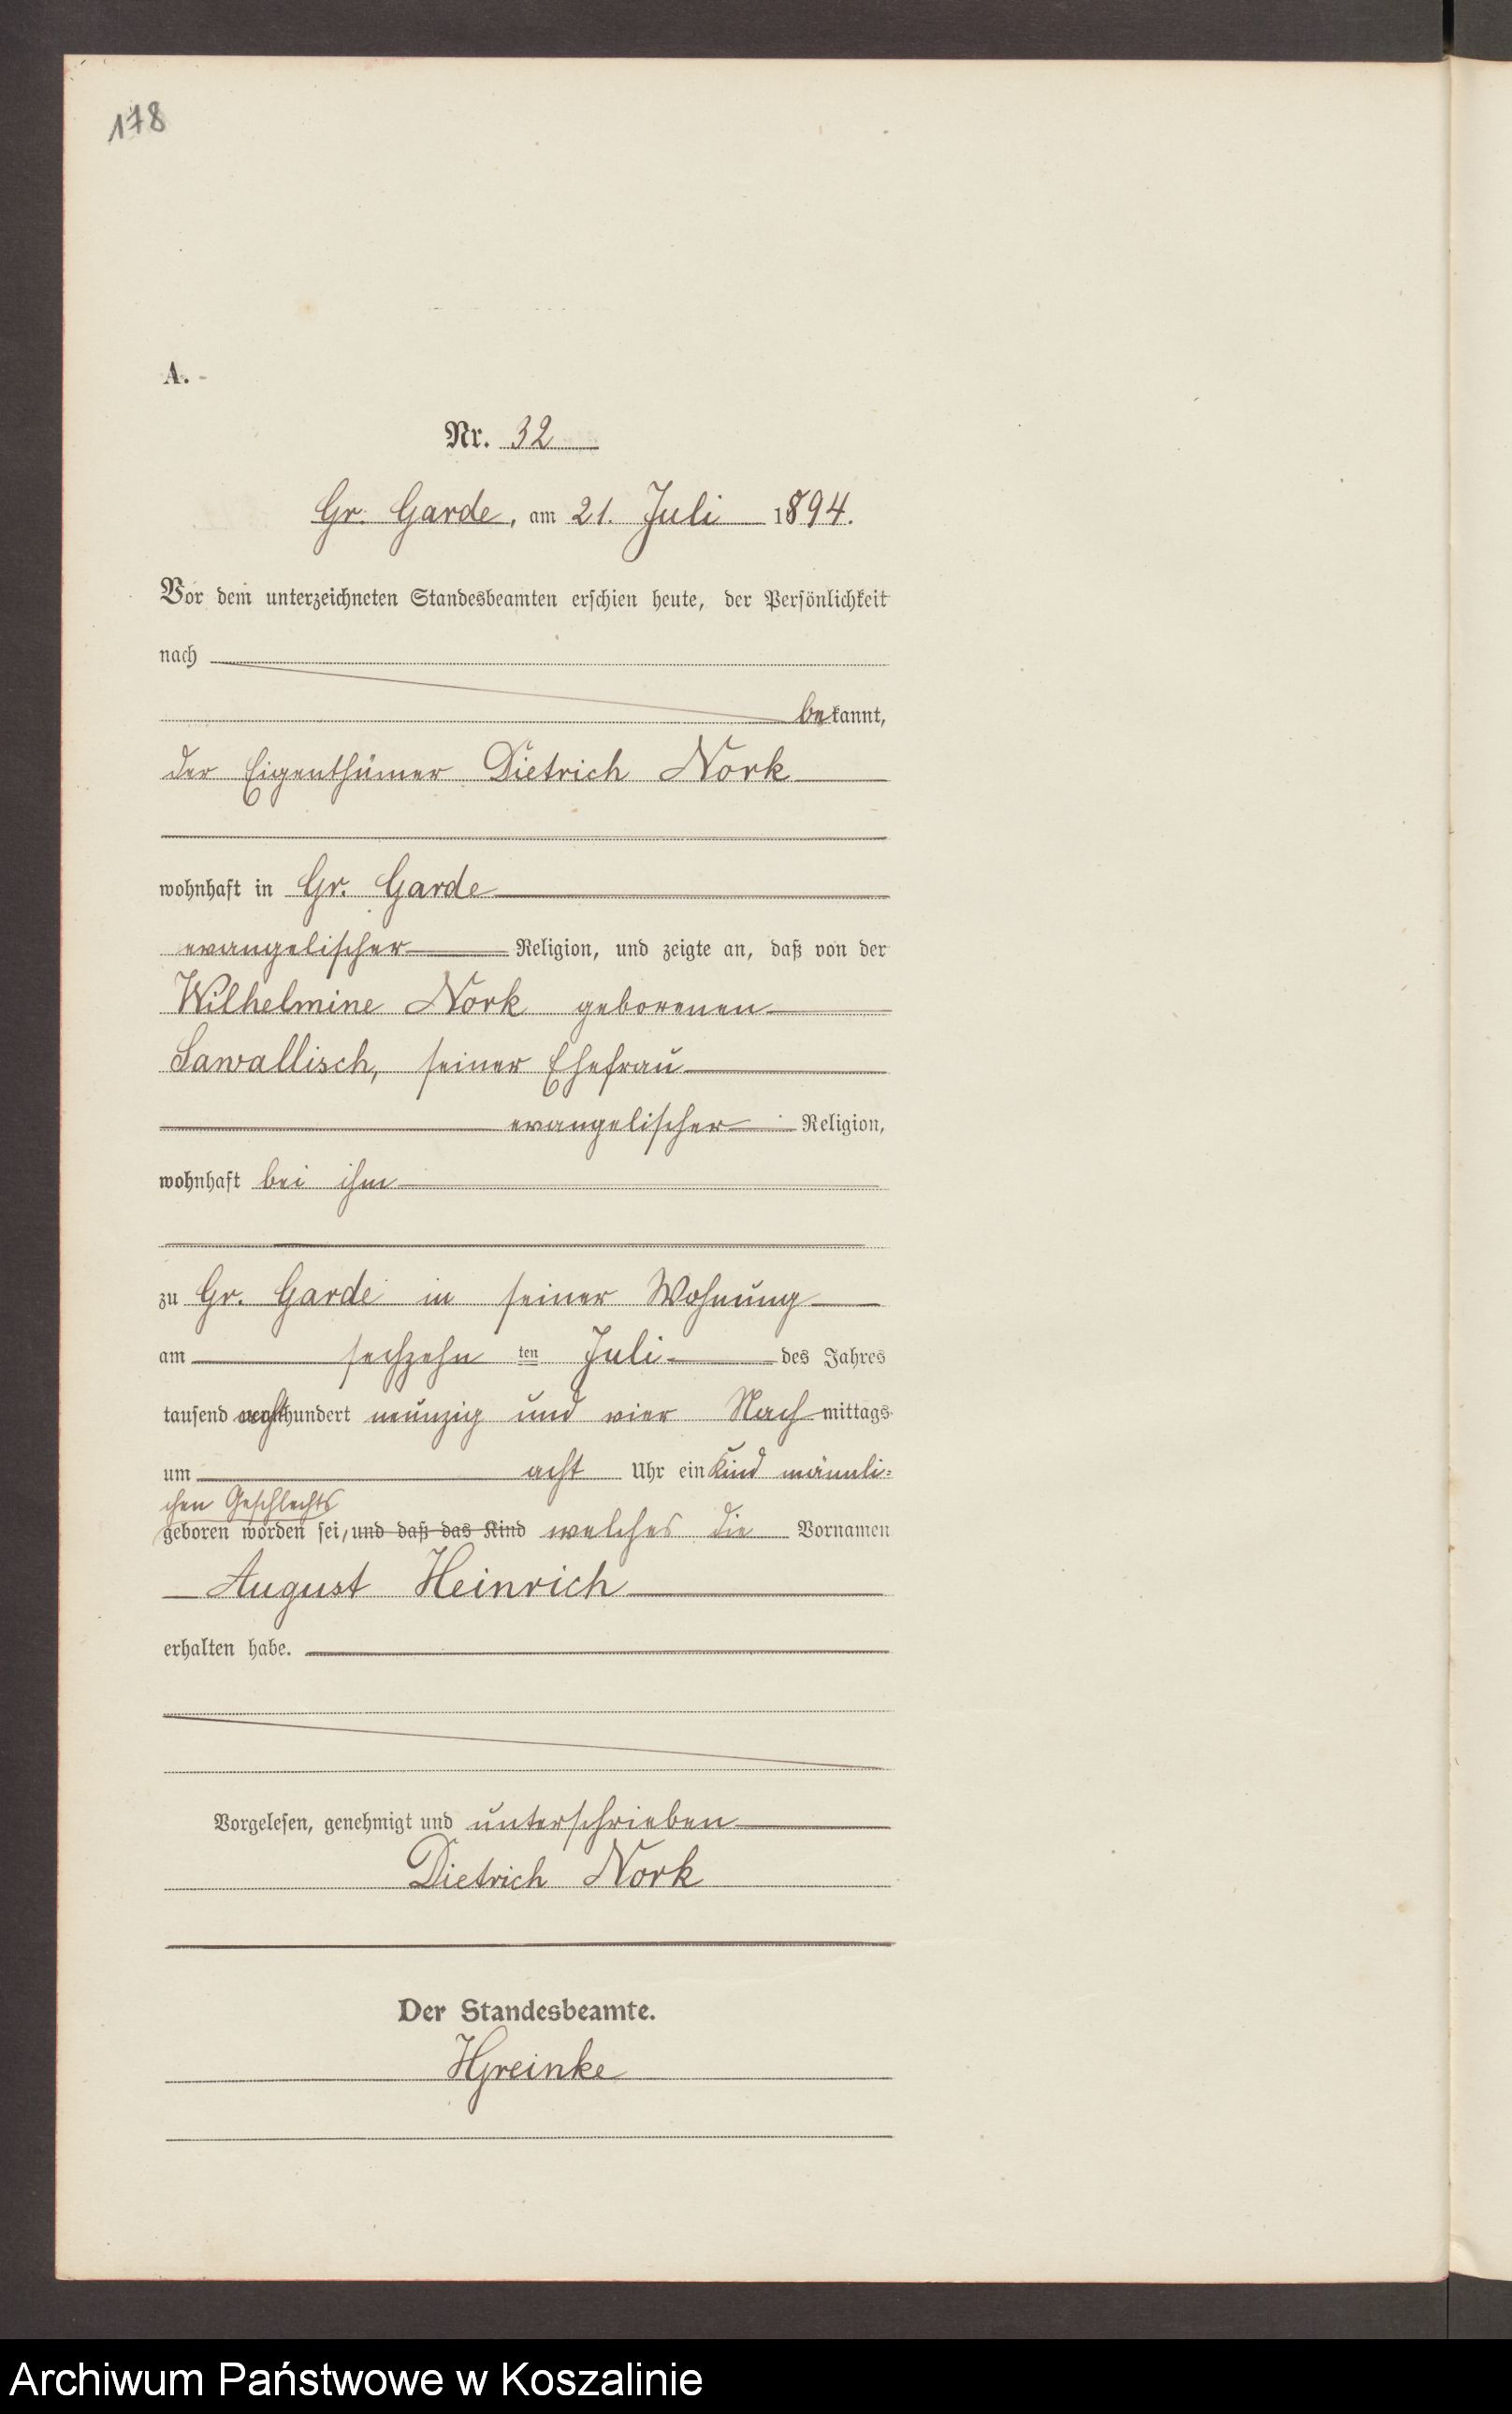 178
A.
Nr. 32
Gr. Garde, am 21. Juli 1894.
Vor dem unterzeichneten Standesbeamten erschien heute, der Persönlichkeit
nach
bekannt,
der Eigenthümer Dietrich Nork
wohnhaft in Gr. Garde
evangelischer Religion, und zeigte an, daß von der
Wilhelmine Nork geborenen
Sawallisch, seiner Ehefrau
evangelischer Religion,
wohnhaft bei ihm
zu Gr. Garde in seiner Wohnung
am sechzehn ten Juli des Jahres
tausend achthundert neunzig und vier Nachmittags
um acht Uhr ein Kind männli=
chen Geschlechts
geboren worden sei, und daß das Kind welches die Vornamen
August Heinrich
erhalten habe.
Vorgelesen, genehmigt und unterschrieben
Dietrich Nork
Der Standesbeamte.
HGreinke
Archiwum Państwowe w Koszalinie